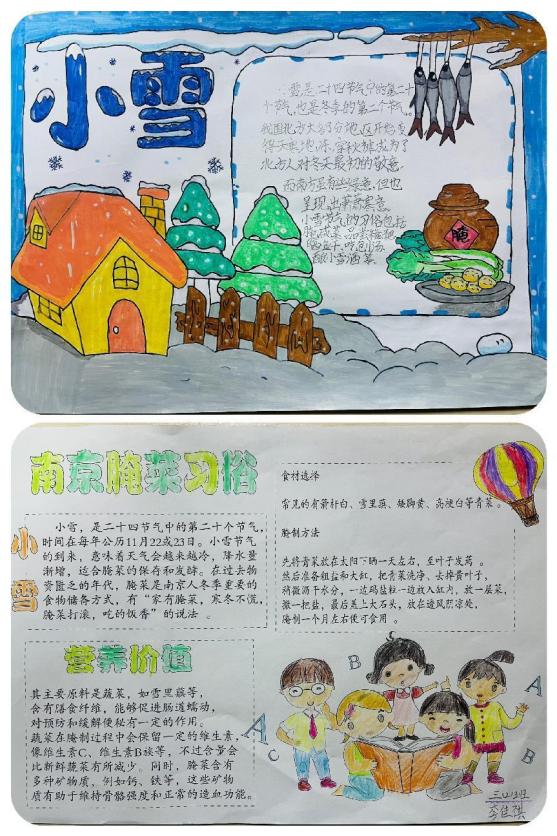 小雪
小雪是二十四节气中的第二十
个节气,也是冬季的第二个节气。
我国北方大部分地区开始变
得天寒地冻,
北方人对冬天最初的敬意。
但也
呈现出萧萧寒意。
小雪节气的习俗包括
腌咸菜、品
吃
腌
南京腌菜习俗
小雪
小雪,是二十四节气中的第二十个节气,
时间在每年公历11月22或23日。小雪节气
的到来,意味着天气会越来越冷,降水量
渐增,适合腌菜的保存和发酵。在过去物
资匮乏的年代,腌菜是南京人冬季重要的
食物储备方式,有“家有腌菜,寒冬不慌,
腌菜打滚,吃的饭香”的说法。
食材选择
常见的有箭杆白、雪里蕻、矮脚黄、高梗白等青菜。
腌制方法
先将青菜放在太阳下晒一天左右,至叶子发蔫。
然后准备粗盐和大缸,把青菜洗净、去掉黄叶子,
稍微沥干水分,一边码盐粒一边放入缸内,放一层菜,
撒一把盐,最后盖上大石头,放在避风阴凉处,
腌制一个月左右便可食用。
营养价值
其主要原料是蔬菜,如雪里蕻等,
含有膳食纤维,能够促进肠道蠕动,
对预防和缓解便秘有一定的作用。
蔬菜在腌制过程中会保留一定的维生素,
像维生素C、维生素B族等,不过含量会
比新鲜蔬菜有所减少。同时,腌菜含有
多种矿物质,例如钙、铁等,这些矿物
质有助于维持骨骼强度和正常的造血功能。
B
A
A
C
B